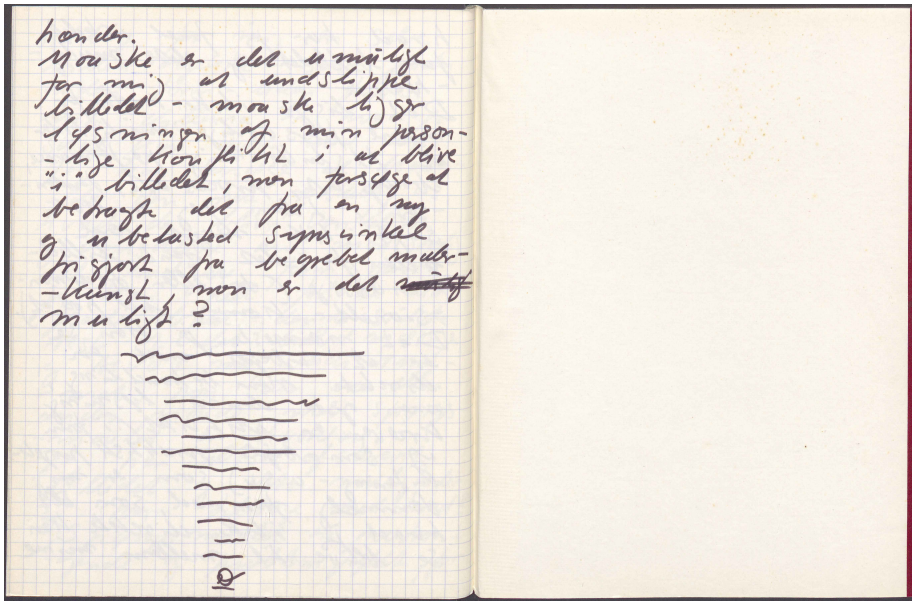 hænder.
Maaske er det umuligt
for mig at undslippe
billedet - maaske ligger
løsningen af min person-
-lige konflikt i at blive
"i" billedet, men forsøge at
betragte det fra en ny
og ubelasted synsvinkel
frigjort fra begrebet maler-
-kunst, men er det
muligt?